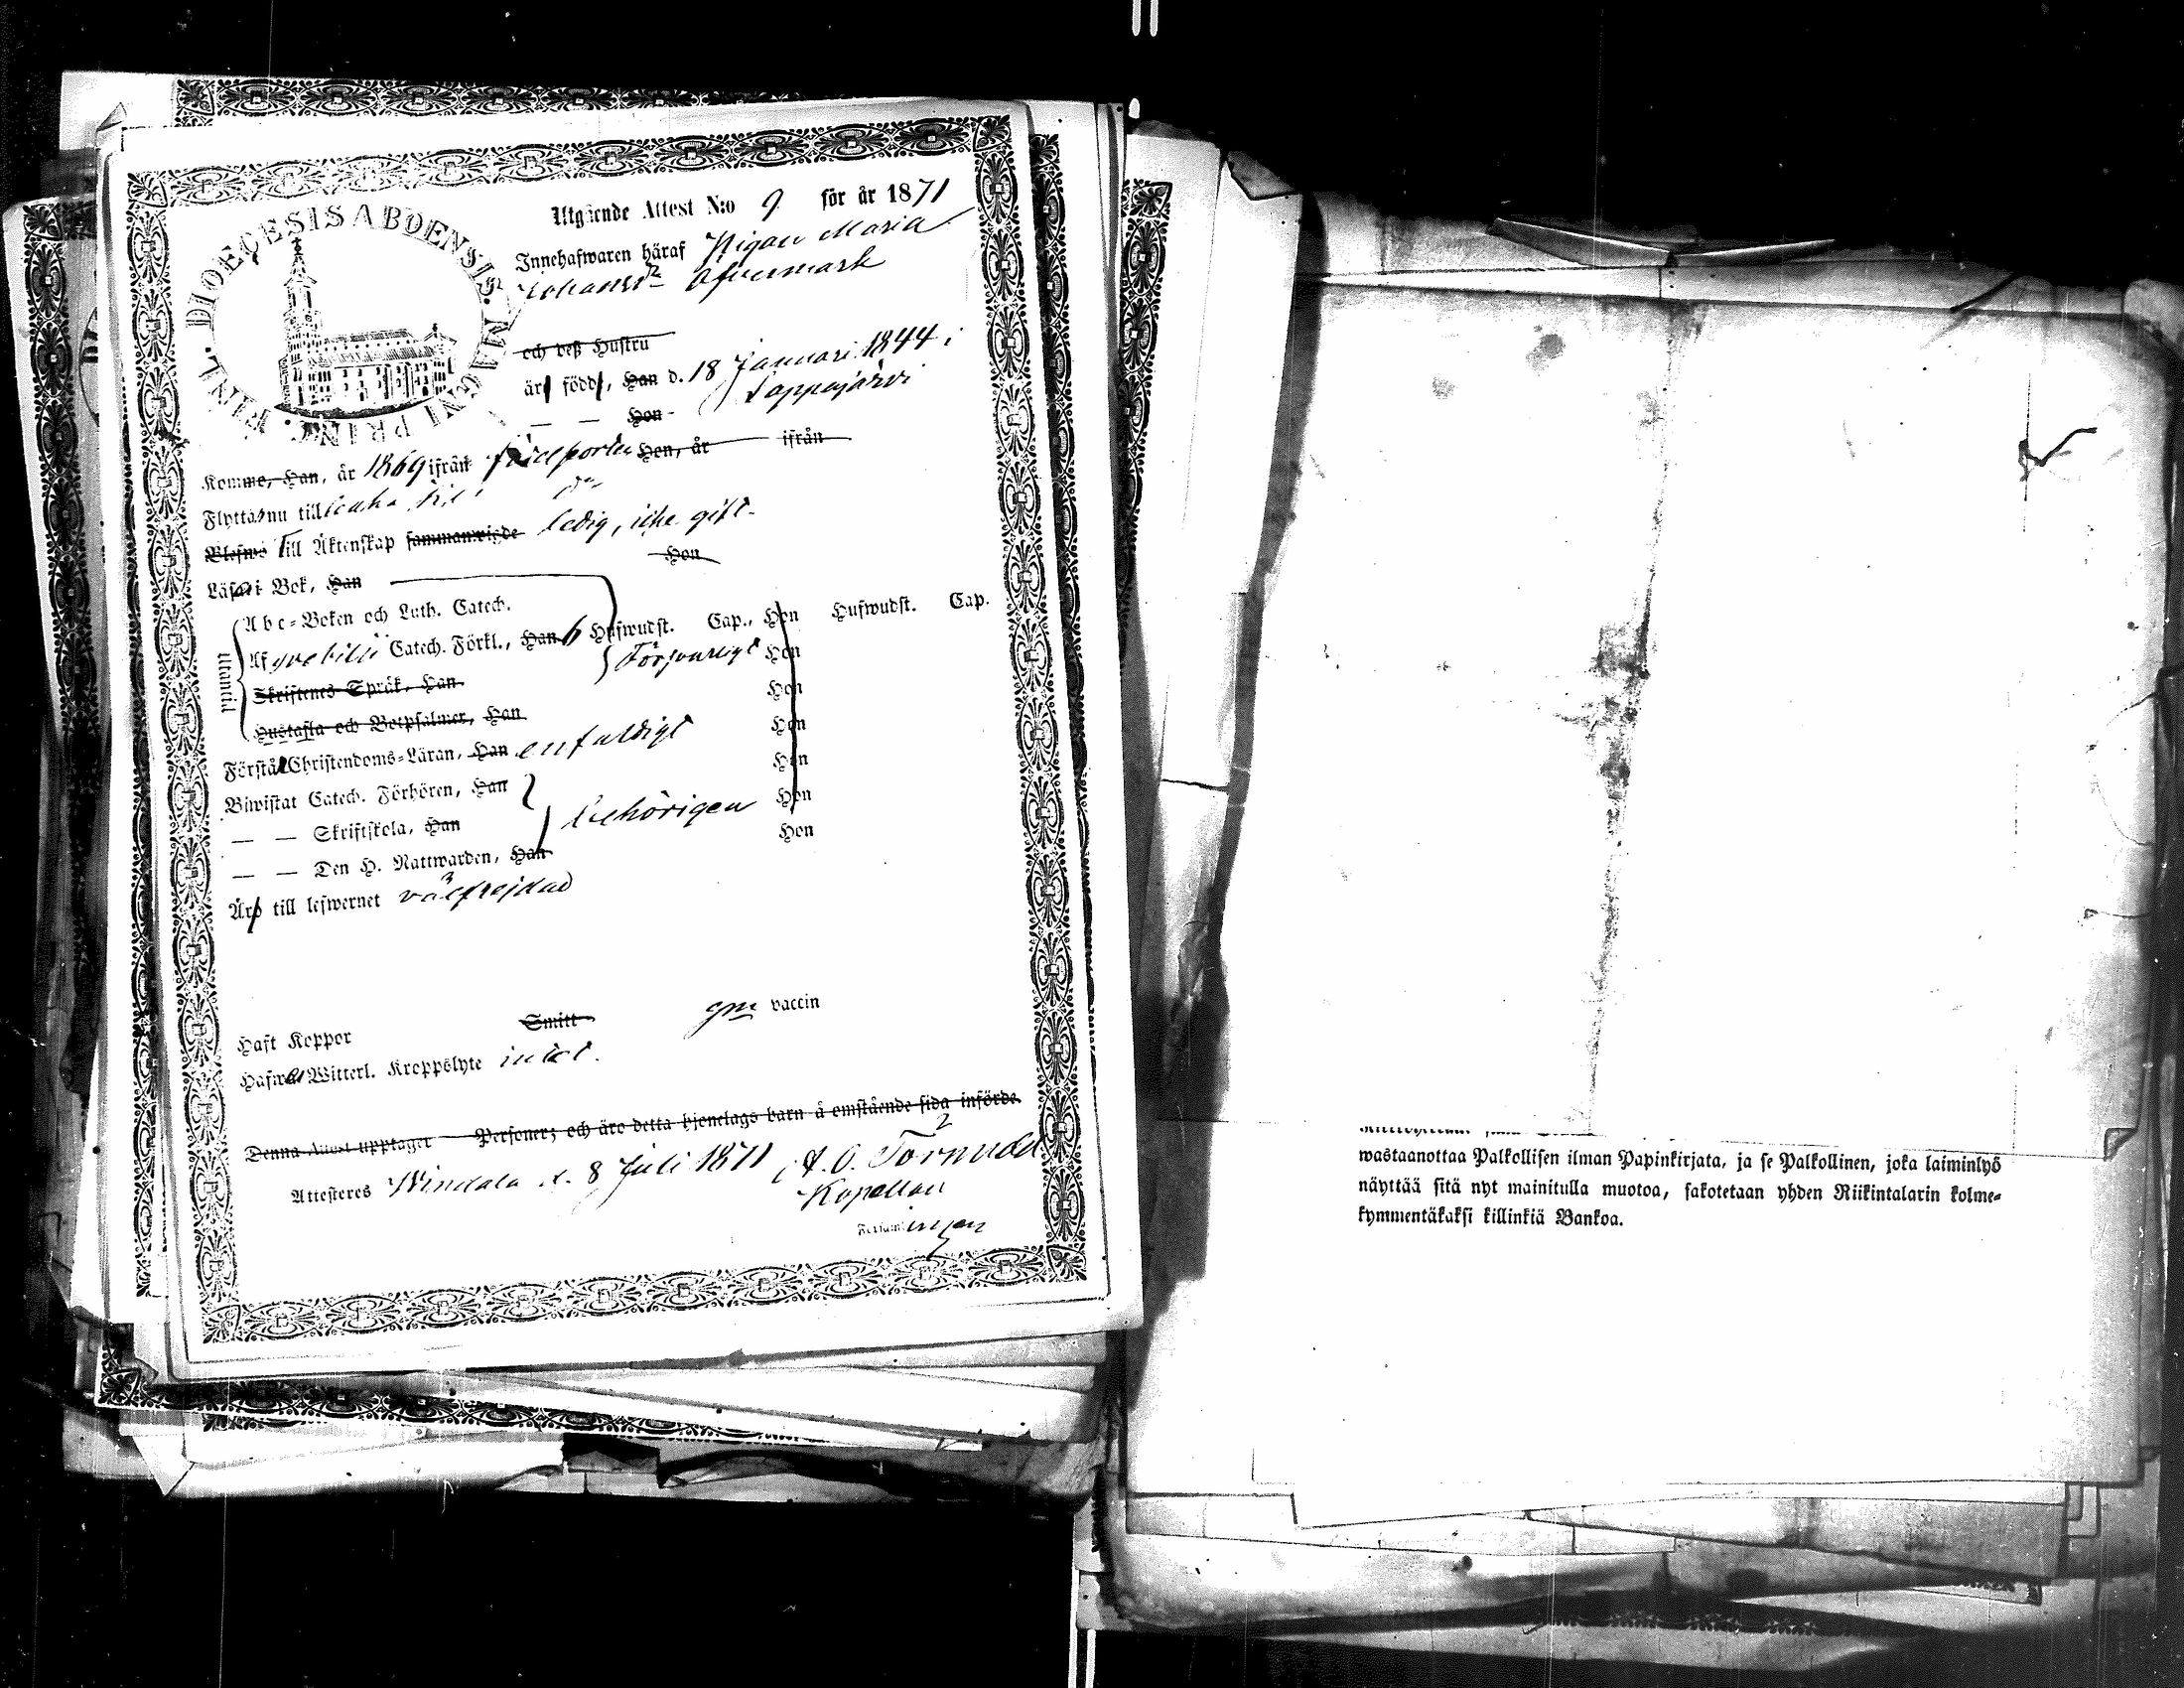 DIOECESIS ABOENSIS. IN MAGNI PRINC. FINL.
Utgående Attest N:o 9 för år 1871
Innehafwaren häraf Pigan Maria
Johansdr Ofvermark
och deß Hustru
är född, Han d. 18 Januari 1844 i
— — Hon - Lappajärvi
Komme, Han, år 1869 ifrån Hon, år ifrån
Flytta nu till
Blefwo Till Äktenskap sammanwigde ledig, icke gift.
Läsa i Bok, Han Hon
Utantill
Abc-Boken och Luth. Catech.
Af Catech. Förkl., Han 6 Hufwudst. Cap., Hon Hufwudst. Cap.
Skriftenes Språk, Han Försvarligt Hon
Hon
Hustafla och Botpsalmer, Han Hon
Förstå Christendoms-Läran, Han enfaldigt Hon
Biwistat Catech. Förhören, Han Hon
— — Skriftskola, Han behörigen Hon
— — Den H. Nattwarden, Han
Äro till lefwernet välfrejdad
Haft Koppor Smitt gm vaccin
Hafwa Witterl. Kroppslyte intet.
Denna Attest upptager — Personer; och äro detta hjonelags barn å omstående sida införde.
Attesteres Windala d. 8 Juli 1871 A. O. Törnudd
Kapellan
Församlingen
wastaanottaa Palkollisen ilman Papinkirjata, ja se Palkollinen, joka laiminlyö
näyttää sitä nyt mainitulla muotoa, sakotetaan yhden Riikintalarin kolme-
kymmentäkaksi killinkiä Bankoa.